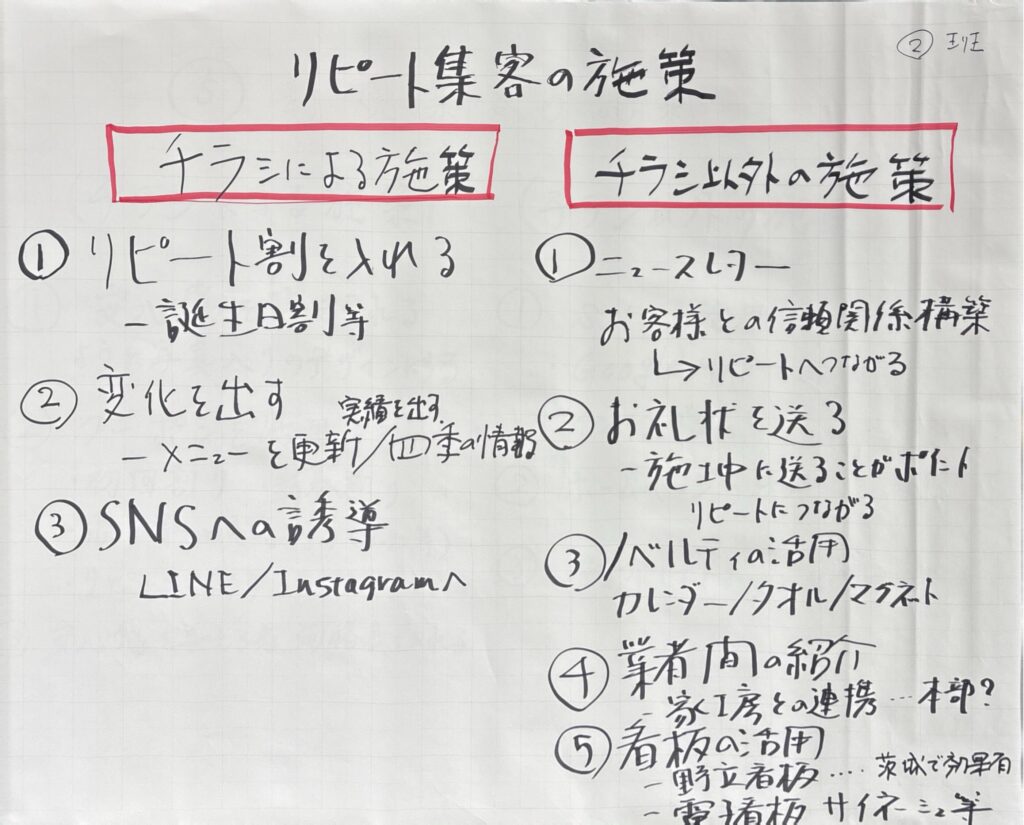 ② 班
リピート集客の施策
チラシによる施策
① リピート割を入れる
- 誕生日割等
② 変化を出す 実績を出す
- メニューを更新/四季の情報
③ SNSへの誘導
LINE/Instagramへ
チラシ以外の施策
① ニュースレター
お客様との信頼関係構築
↳リピートへつながる
② お礼状を送る
- 施工中に送ることがポイント
リピートにつながる
③ ノベルティの活用
カレンダー/タオル/マグネット
④ 業者間の紹介
- 家工房との連携…本部?
⑤ 看板の活用
- 野立看板….茨城で効果有
- 電子看板 サイネージ等